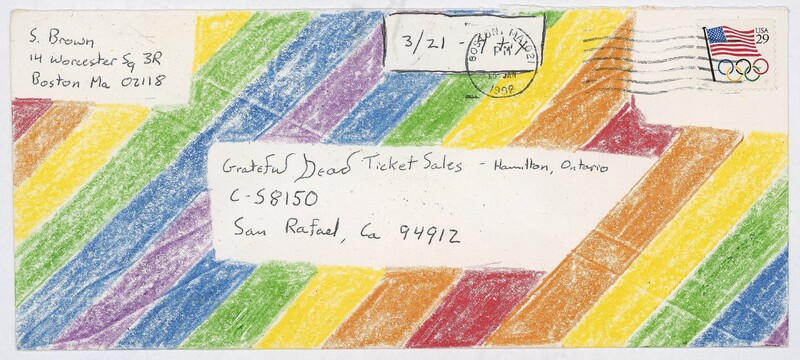 S. Brown
14 Worcester Sq 3R
Boston Ma 02118
3/21 -
BOSTON, MA 021
PM
JAN
1992
USA
29
Grateful Dead Ticket Sales - Hamilton, Ontario
C-S8150
San Rafael, Ca 94912